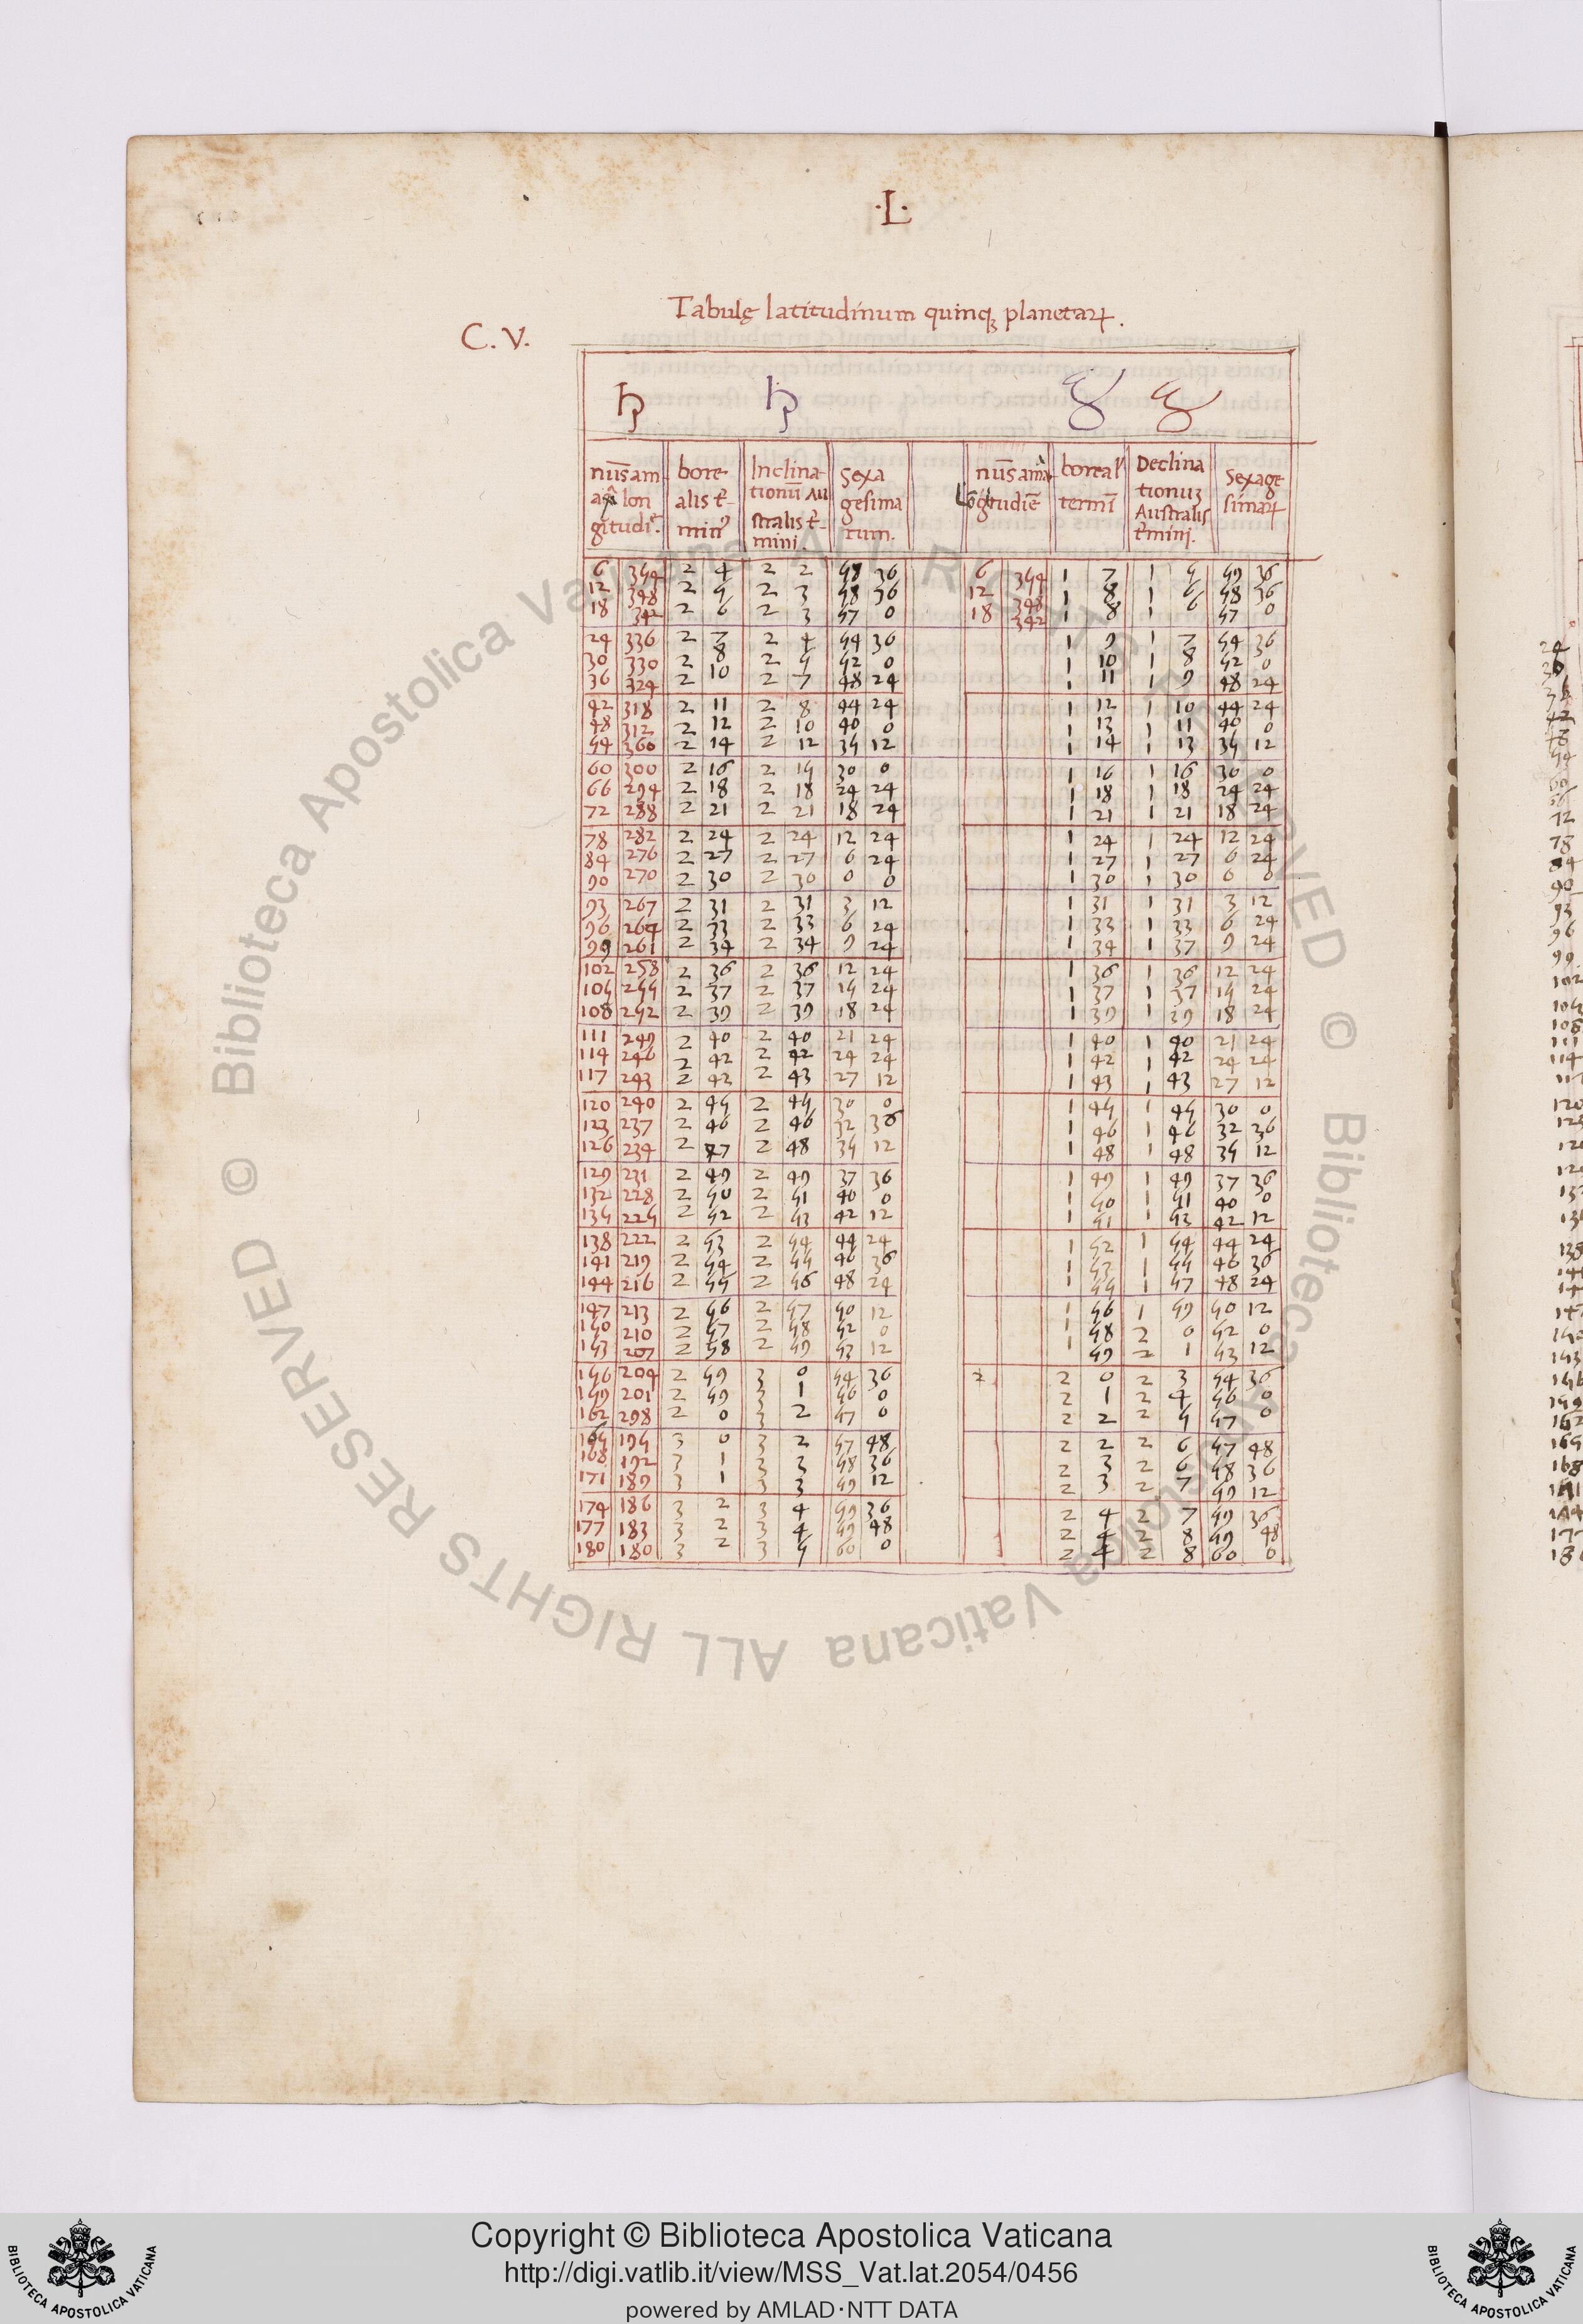 ·L·
Tabulę latitudinum quinqꝫ planetaꝝ.
C. V.
♄ ♄ ♃ ♃
nūs am bore Inclina Sexa nūs ama boreal Declina Sexage
aqͣ lon alis t̄ tionū Au gesima lo gitudiē termī tionuꝫ simaꝝ
gitudiē. minꝰ stralis t̄ rum. Australis
mini. t̄mini.
6 354 2 4 2 2 58 36 6 354 1 7 1 5 59 36
12 348 2 5 2 3 58 36 12 348 1 8 1 6 58 36
18 342 2 6 2 3 57 0 18 342 1 8 1 6 57 0
24 336 2 7 2 4 54 36 1 9 1 7 54 36
30 330 2 8 2 5 52 0 1 10 1 8 52 0
36 324 2 10 2 7 48 24 1 11 1 9 48 24
42 318 2 11 2 8 44 24 1 12 1 10 44 24
48 312 2 12 2 10 40 0 1 13 1 11 40 0
54 360 2 14 2 12 35 12 1 14 1 13 35 12
60 300 2 16 2 15 30 0 1 16 1 16 30 0
66 294 2 18 2 18 24 24 1 18 1 18 24 24
72 288 2 21 2 21 18 24 1 21 1 21 18 24
78 282 2 24 2 24 12 24 1 24 1 24 12 24
84 276 2 27 2 27 6 24 1 27 1 27 6 24
90 270 2 30 2 30 0 0 1 30 1 30 0 0
93 267 2 31 2 31 3 12 1 31 1 31 3 12
96 264 2 33 2 33 6 24 1 33 1 33 6 24
99 261 2 34 2 34 9 24 1 34 1 37 9 24
102 258 2 36 2 36 12 24 1 36 1 36 12 24
105 255 2 37 2 37 15 24 1 37 1 37 15 24
108 252 2 39 2 39 18 24 1 39 1 39 18 24
111 249 2 40 2 40 21 24 1 40 1 40 21 24
114 246 2 42 2 42 24 24 1 42 1 42 24 24
117 243 2 42 2 43 27 12 1 43 1 43 27 12
120 240 2 45 2 45 30 0 1 45 1 45 30 0
123 237 2 46 2 46 32 36 1 46 1 46 32 36
126 234 2 47 2 48 35 12 1 48 1 48 35 12
129 231 2 49 2 49 37 36 1 49 1 49 37 36
132 228 2 50 2 51 40 0 1 50 1 51 40 0
135 225 2 52 2 53 42 12 1 51 1 53 42 12
138 222 2 53 2 54 44 24 1 52 1 54 44 24
141 219 2 54 2 55 46 36 1 53 1 55 46 36
144 216 2 55 2 56 48 24 1 55 1 57 48 24
147 213 2 56 2 57 50 12 1 56 1 59 50 12
150 210 2 57 2 58 52 0 1 58 2 0 52 0
153 207 2 58 2 59 53 12 1 59 2 1 53 12
156 204 2 59 3 0 54 36 2 2 0 2 3 54 36
159 201 2 59 3 1 56 0 2 1 2 4 56 0
162 298 2 0 3 2 57 0 2 2 2 5 57 0
165 195 3 0 3 2 57 48 2 2 2 6 57 48
168 192 3 1 3 3 58 36 2 3 2 6 58 36
171 189 3 1 3 3 59 12 2 3 2 7 59 12
174 186 3 2 3 4 59 36 2 4 2 7 59 36
177 183 3 2 3 4 59 48 2 4 2 8 59 48
180 180 3 2 3 5 60 0 2 4 2 8 60 0
© Biblioteca Apostolica Vaticana ALL RIGHTS RESERVED © Biblioteca Apostolica Vaticana ALL RIGHTS RESERVED
Copyright © Biblioteca Apostolica Vaticana
http://digi.vatlib.it/view/MSS_Vat.lat.2054/0456
powered by AMLAD·NTT DATA
BIBLIOTECA APOSTOLICA VATICANA
BIBLIOTECA APOSTOLICA VATICANA